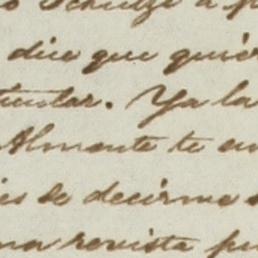 Schulze a
dice que quié
ticular. Ya la
Almente te en
is de decirme
na revista pu